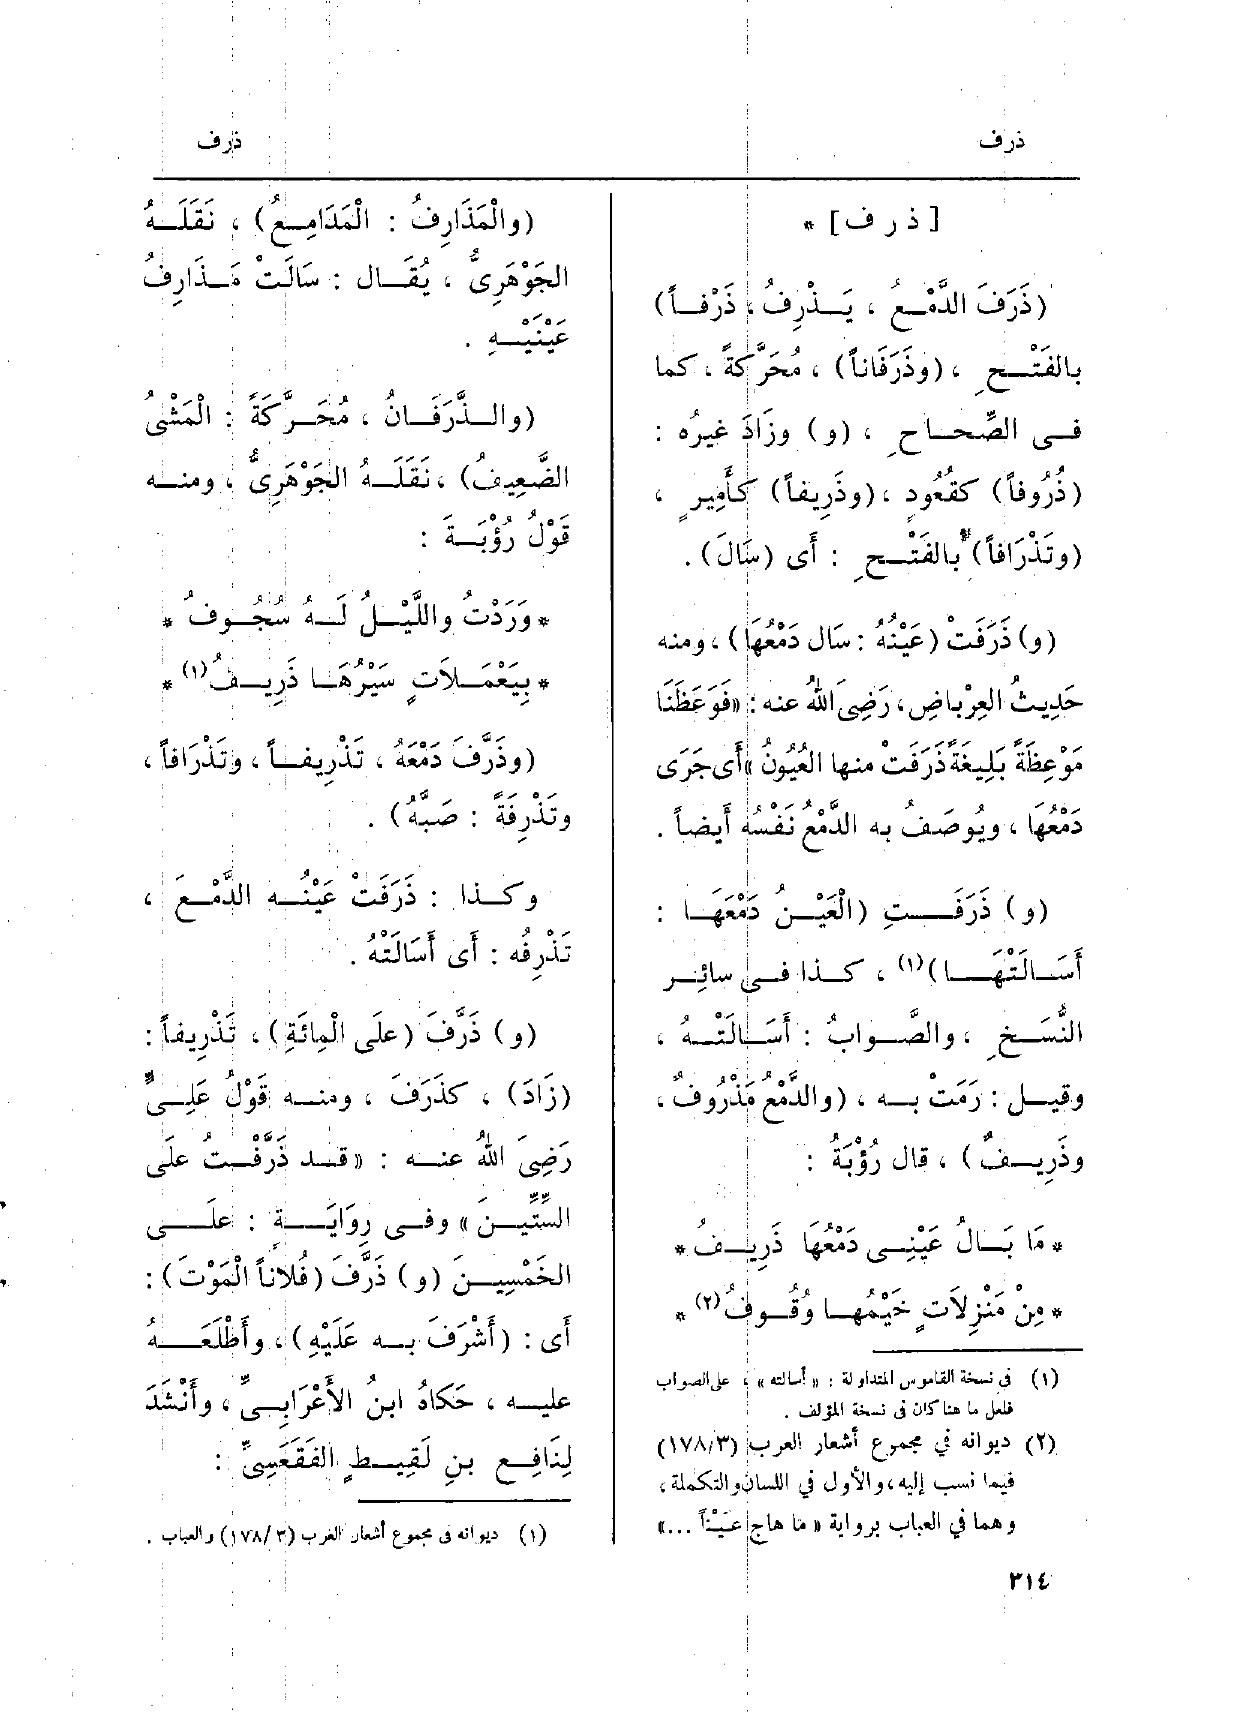 ذرف
ذرف
[ ذ ر ف ] *
(ذَرَفَ الدَّمْعُ ، يَذْرِفُ ، ذَرْفاً)
بالفَتْحِ ، (وذَرَفَاناً) ، مُحَرَّكَةً ، كما
فى الصِّحاحِ ، (و) وزَادَ غيرُه :
(ذُرُوفاً) كقُعُودٍ ، (وذَرِيفاً) كأَمِيرٍ ،
(وتَذْرَافاً) بالفَتْحِ : أَى (سَالَ) .
(و) ذَرَفَتْ (عَيْنُهُ : سَال دَمْعُهَا) ، ومنه
حَدِيثُ العِرْباضِ، رَضِىَ اللهُ عنه : «فَوَعَظَنَا
مَوْعِظَةً بَلِيغَةً ذَرَفَتْ منها العُيُونُ» أَى جَرَى
دَمْعُها ، ويُوصَفُ به الدَّمْعُ نَفْسُه أَيضاً .
(و) ذَرَفَتِ (الْعَيْنُ دَمْعَهَا :
أَسَالَتْهَا)(١) ، كذا فى سائِرِ
النُّسَخِ ، والصَّوابُ : أَسَالَتْهُ ،
وقيل : رَمَتْ به ، (والدَّمْعُ مَذْرُوفٌ ،
وذَرِيفٌ) ، قال رُؤْبَةُ :
* مَا بَالُ عَيْنِى دَمْعُها ذَرِيفُ *
* مِنْ مَنْزِلَاتٍ خَيْمُها وُقُوفُ(٢) *
(١) فى نسخة القاموس المتداولة : «أسالته» ، على الصواب
فلعل ما هنا كان فى نسخة المؤلف .
(٢) ديوانه في مجموع أشعار العرب (١٧٨/٣)
فيما نسب إليه، والأول في اللسان والتكملة،
وهما في العباب برواية «ما هاج عَيْناً ...»
٣١٤
(والْمَذَارِفُ : الْمَدَامِعُ) ، نَقَلَهُ
الجَوْهَرِىُّ ، يُقَال : سَالَتْ مَذَارِفُ
عَيْنَيْهِ .
(والذَّرَفَانُ ، مُحَرَّكَةً : الْمَشْىُ
الضَّعِيفُ) ، نَقَلَهُ الجَوْهَرِىُّ ، ومنه
قَوْلُ رُؤْبَةَ :
* وَرَدْتُ واللَّيْلُ لَهُ سُجُوفُ *
* بِيَعْمَلَاتٍ سَيْرُهَا ذَرِيفُ(١) *
(وذَرَّفَ دَمْعَهُ ، تَذْرِيفاً ، وتَذْرَافاً ،
وتَذْرِفَةً : صَبَّهُ) .
وكذا : ذَرَفَتْ عَيْنُه الدَّمْعَ ،
تَذْرِفُه : أَى أَسَالَتْهُ .
(و) ذَرَّفَ (علَى الْمِائَةِ) ، تَذْرِيفاً :
(زَادَ) ، كذَرَفَ ، ومنه قَوْلُ عَلِىٍّ
رَضِىَ اللهُ عنه : «قد ذَرَّفْتُ علَى
السِّتِّينَ» وفى رِوَايَةٍ : علَى
الخَمْسِينَ (و) ذَرَّفَ (فُلاناً الْمَوْتَ) :
أَى : (أَشْرَفَ به عَلَيْهِ) ، وأَطْلَعَهُ
عليه ، حَكَاهُ ابنُ الأَعْرَابِىِّ ، وأَنْشَدَ
لِنَافِعِ بنِ لَقِيطٍ الفَقْعَسِىِّ :
(١) ديوانه فى مجموع أشعار العرب (١٧٨/٣) والعباب .